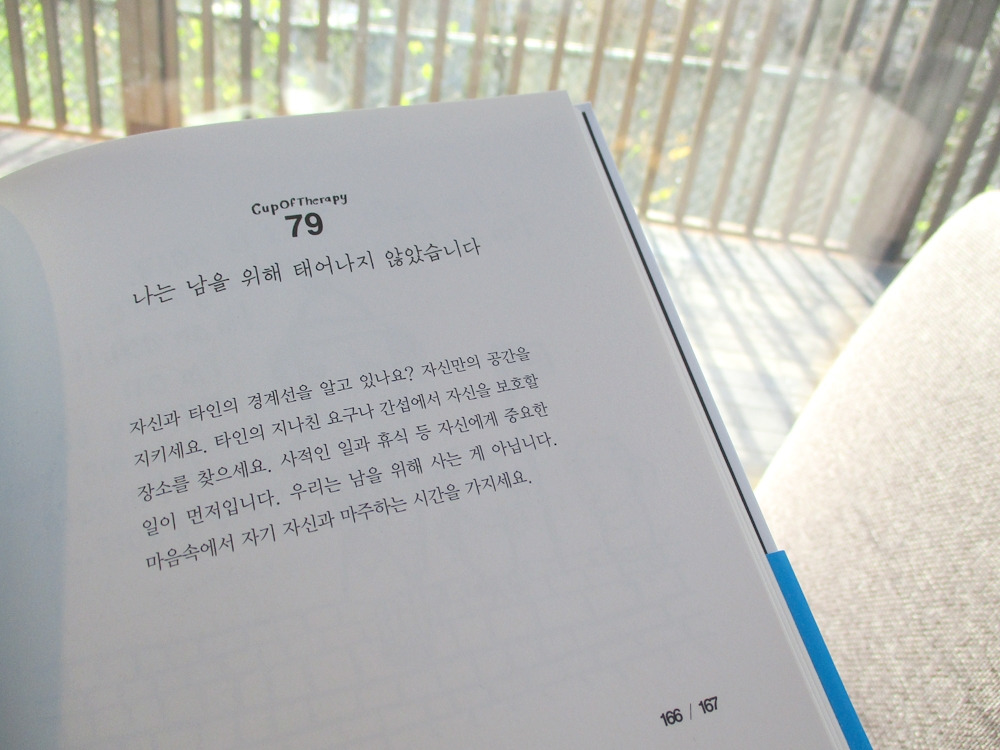 CupOfTherapy
79
나는 남을 위해 태어나지 않았습니다
자신과 타인의 경계선을 알고 있나요? 자신만의 공간을
지키세요. 타인의 지나친 요구나 간섭에서 자신을 보호할
장소를 찾으세요. 사적인 일과 휴식 등 자신에게 중요한
일이 먼저입니다. 우리는 남을 위해 사는 게 아닙니다.
마음속에서 자기 자신과 마주하는 시간을 가지세요.
166 / 167